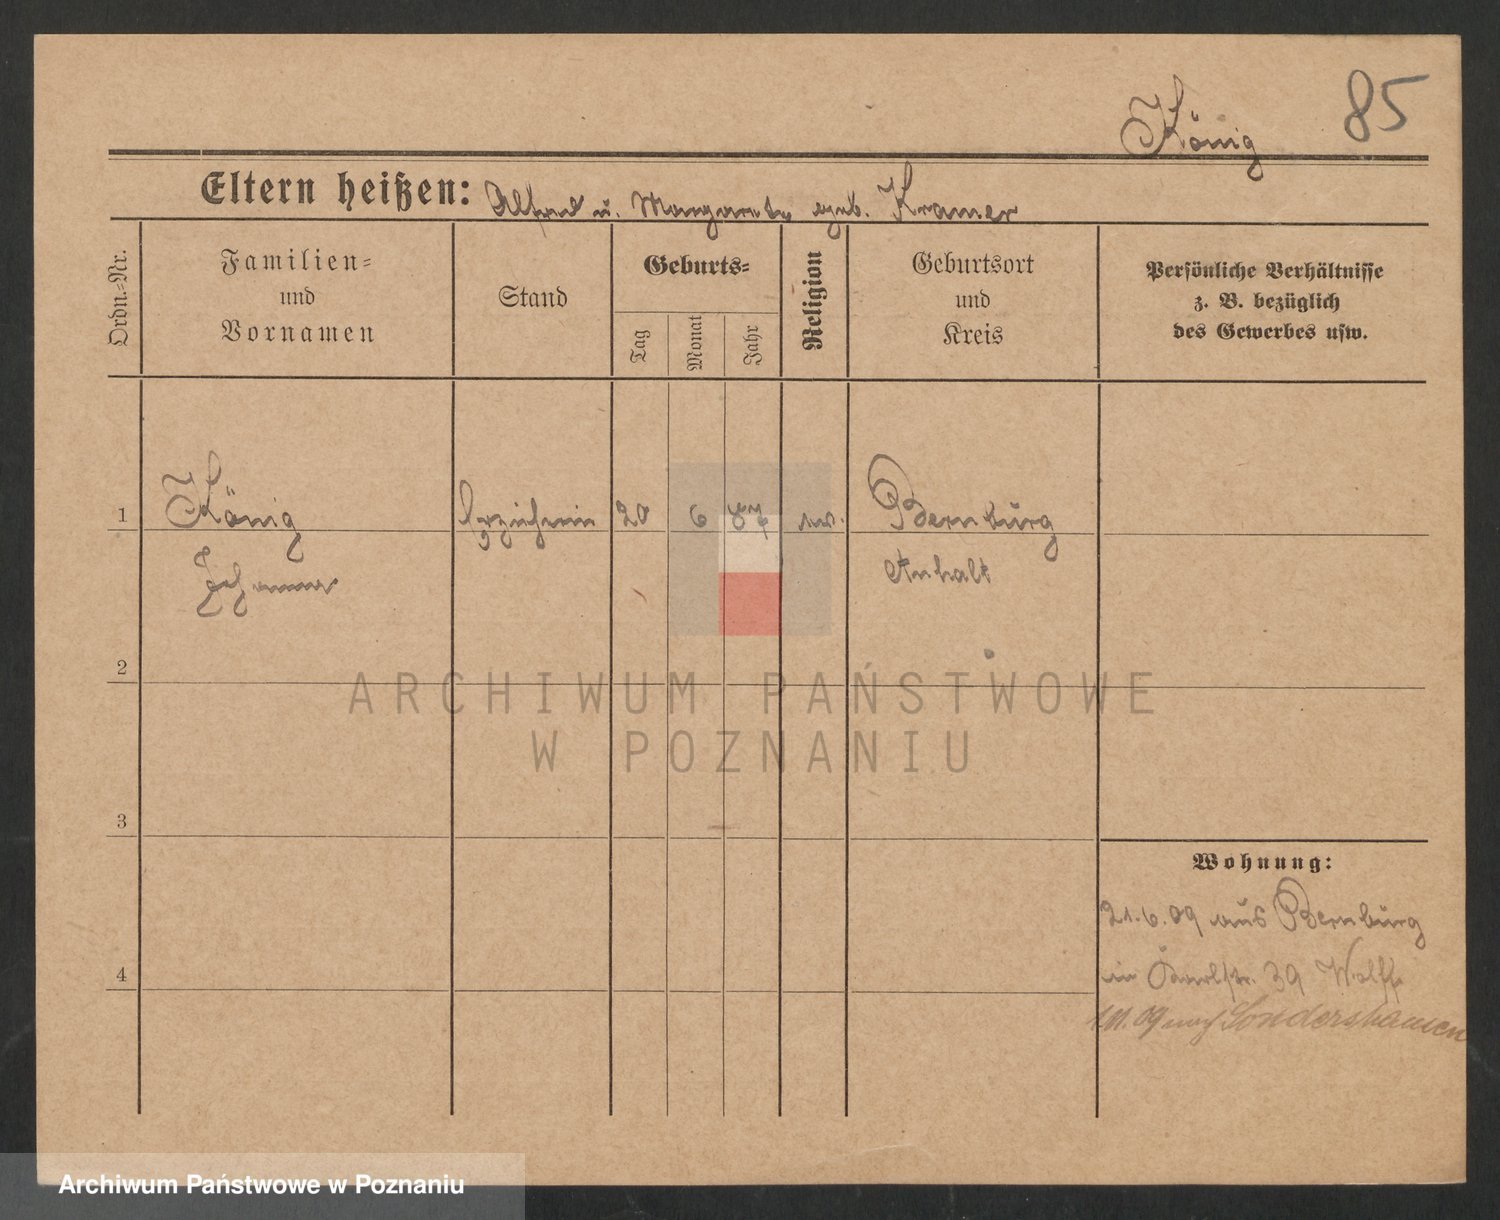 85
König
Eltern heißen: Alfred u. Margarete geb. Kramer
Ordn.-Nr.
Familien-
und
Vornamen
Stand
Geburts-
Tag
Monat
Jahr
Religion
Geburtsort
und
Kreis
Persönliche Verhältnisse
z. B. bezüglich
des Gewerbes usw.
1
König
Erzieherin
20
6
87
ev.
Bernburg
Johanna
Anhalt
2
ARCHIWUM PAŃSTWOWE
W POZNANIU
3
Wohnung:
21.6.09 aus Bernburg
in Karlstr. 39 Wolff
4
09 nach Sondershausen
Archiwum Państwowe w Poznaniu